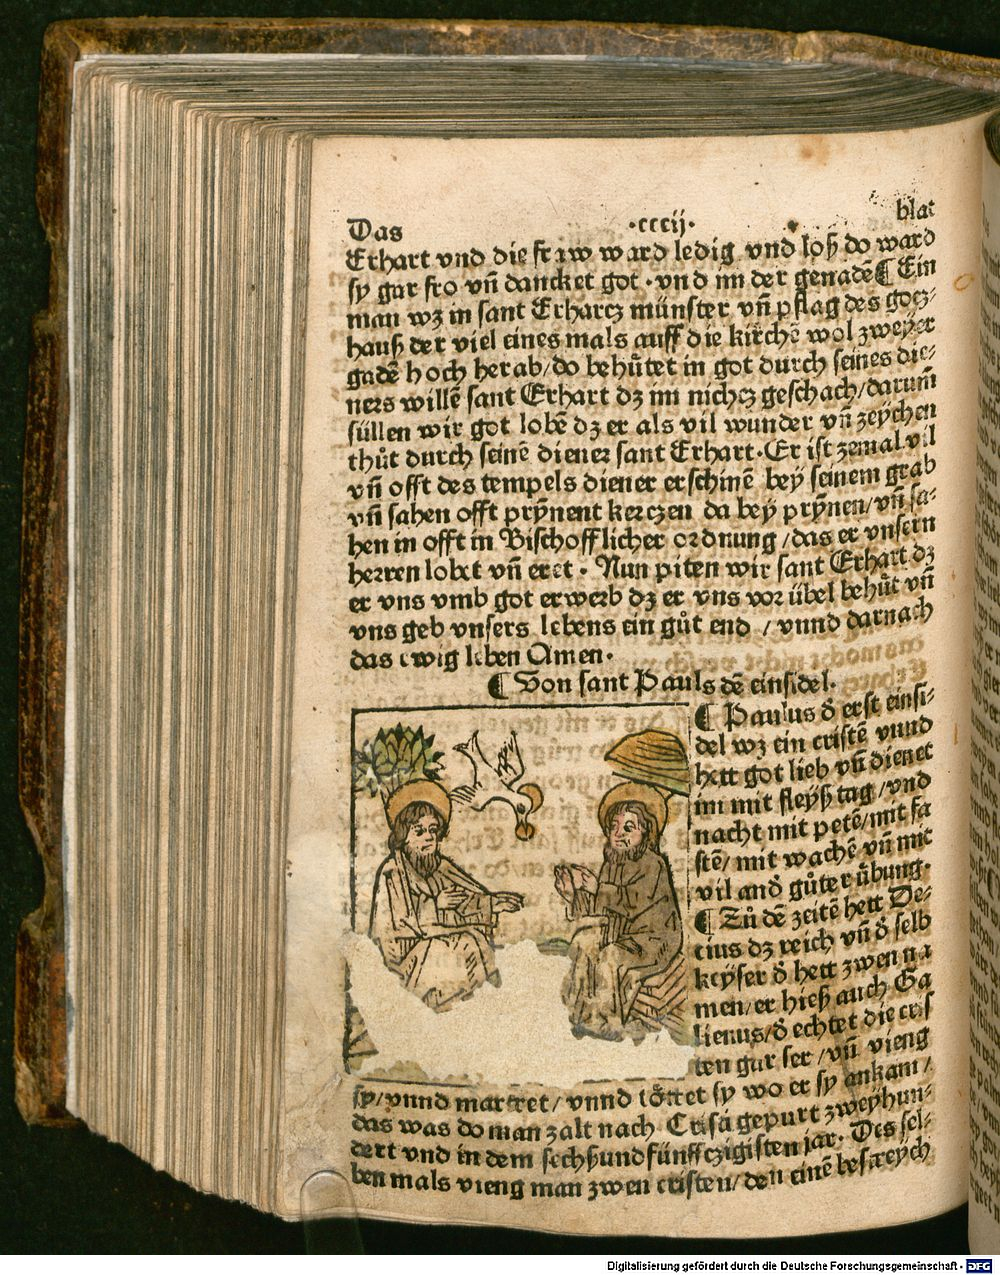 Das ·cccij· blat
Erhart vnd die fraw ward ledig vnd loß do ward
sy gar fro vñ dancket got · vnd im der genadẽ ¶ Ein
man wz in sant Erharcz münster vñ pflag des gocz⸗
hauß der viel eines mals auff die kirchẽ wol zweyer
gadẽ hoch herab/do behuͤtet in got durch seines die⸗
ners willẽ sant Erhart dz im nichcz geschach/darum̃
süllen wir got lobẽ dz er als vil wunder vñ zeychen
thuͦt durch seinẽ diener sant Erhart·Er ist zemal vil
vñ offt des tempels diener erschinẽ bey seinem grab
vñ sahen offt prÿnent kerczen da bey prÿnen/vñ sa⸗
hen in offt in Bischofflicher ordnung/das er vnsern
herren lobet vñ eret · Nun piten wir sant Erhart dz
er vns vmb got erwerb dz er vns vor übel behuͤt vñ
vns geb vnsers lebens ein guͦt end / vnnd darnach
das ewig leben Amen·
¶ Von sant Pauls dẽ einsidel·
¶ Paulus d̕ erst einsi⸗
del wz ein cristẽ vnnd
hett got lieb vñ dienet
im mit fleyß tag/vnd
nacht mit petẽ/mit fa
stẽ/mit wachẽ vñ mit
vil and̕ guͦter uͤbung·
¶ Zuͦ dẽ zeitẽ hett De⸗
cius dz reich vñ d̕ selb
keyser d̕ hett zwen na
men/er hieß auch Ga
lienus/d̕ echtet die cris
ten gar ser/vñ vieng
sy/vnnd martret/vnnd toͤttet sy wo er sy ankam/
das was do man zalt nach Cristi gepurt zweyhun⸗
dert vnd in dem sechßundfünffczigisten jar· Des sel⸗
ben mals vieng man zwen cristen/den einẽ bestreych
Digitalisierung gefördert durch die Deutsche Forschungsgemeinschaft - DFG